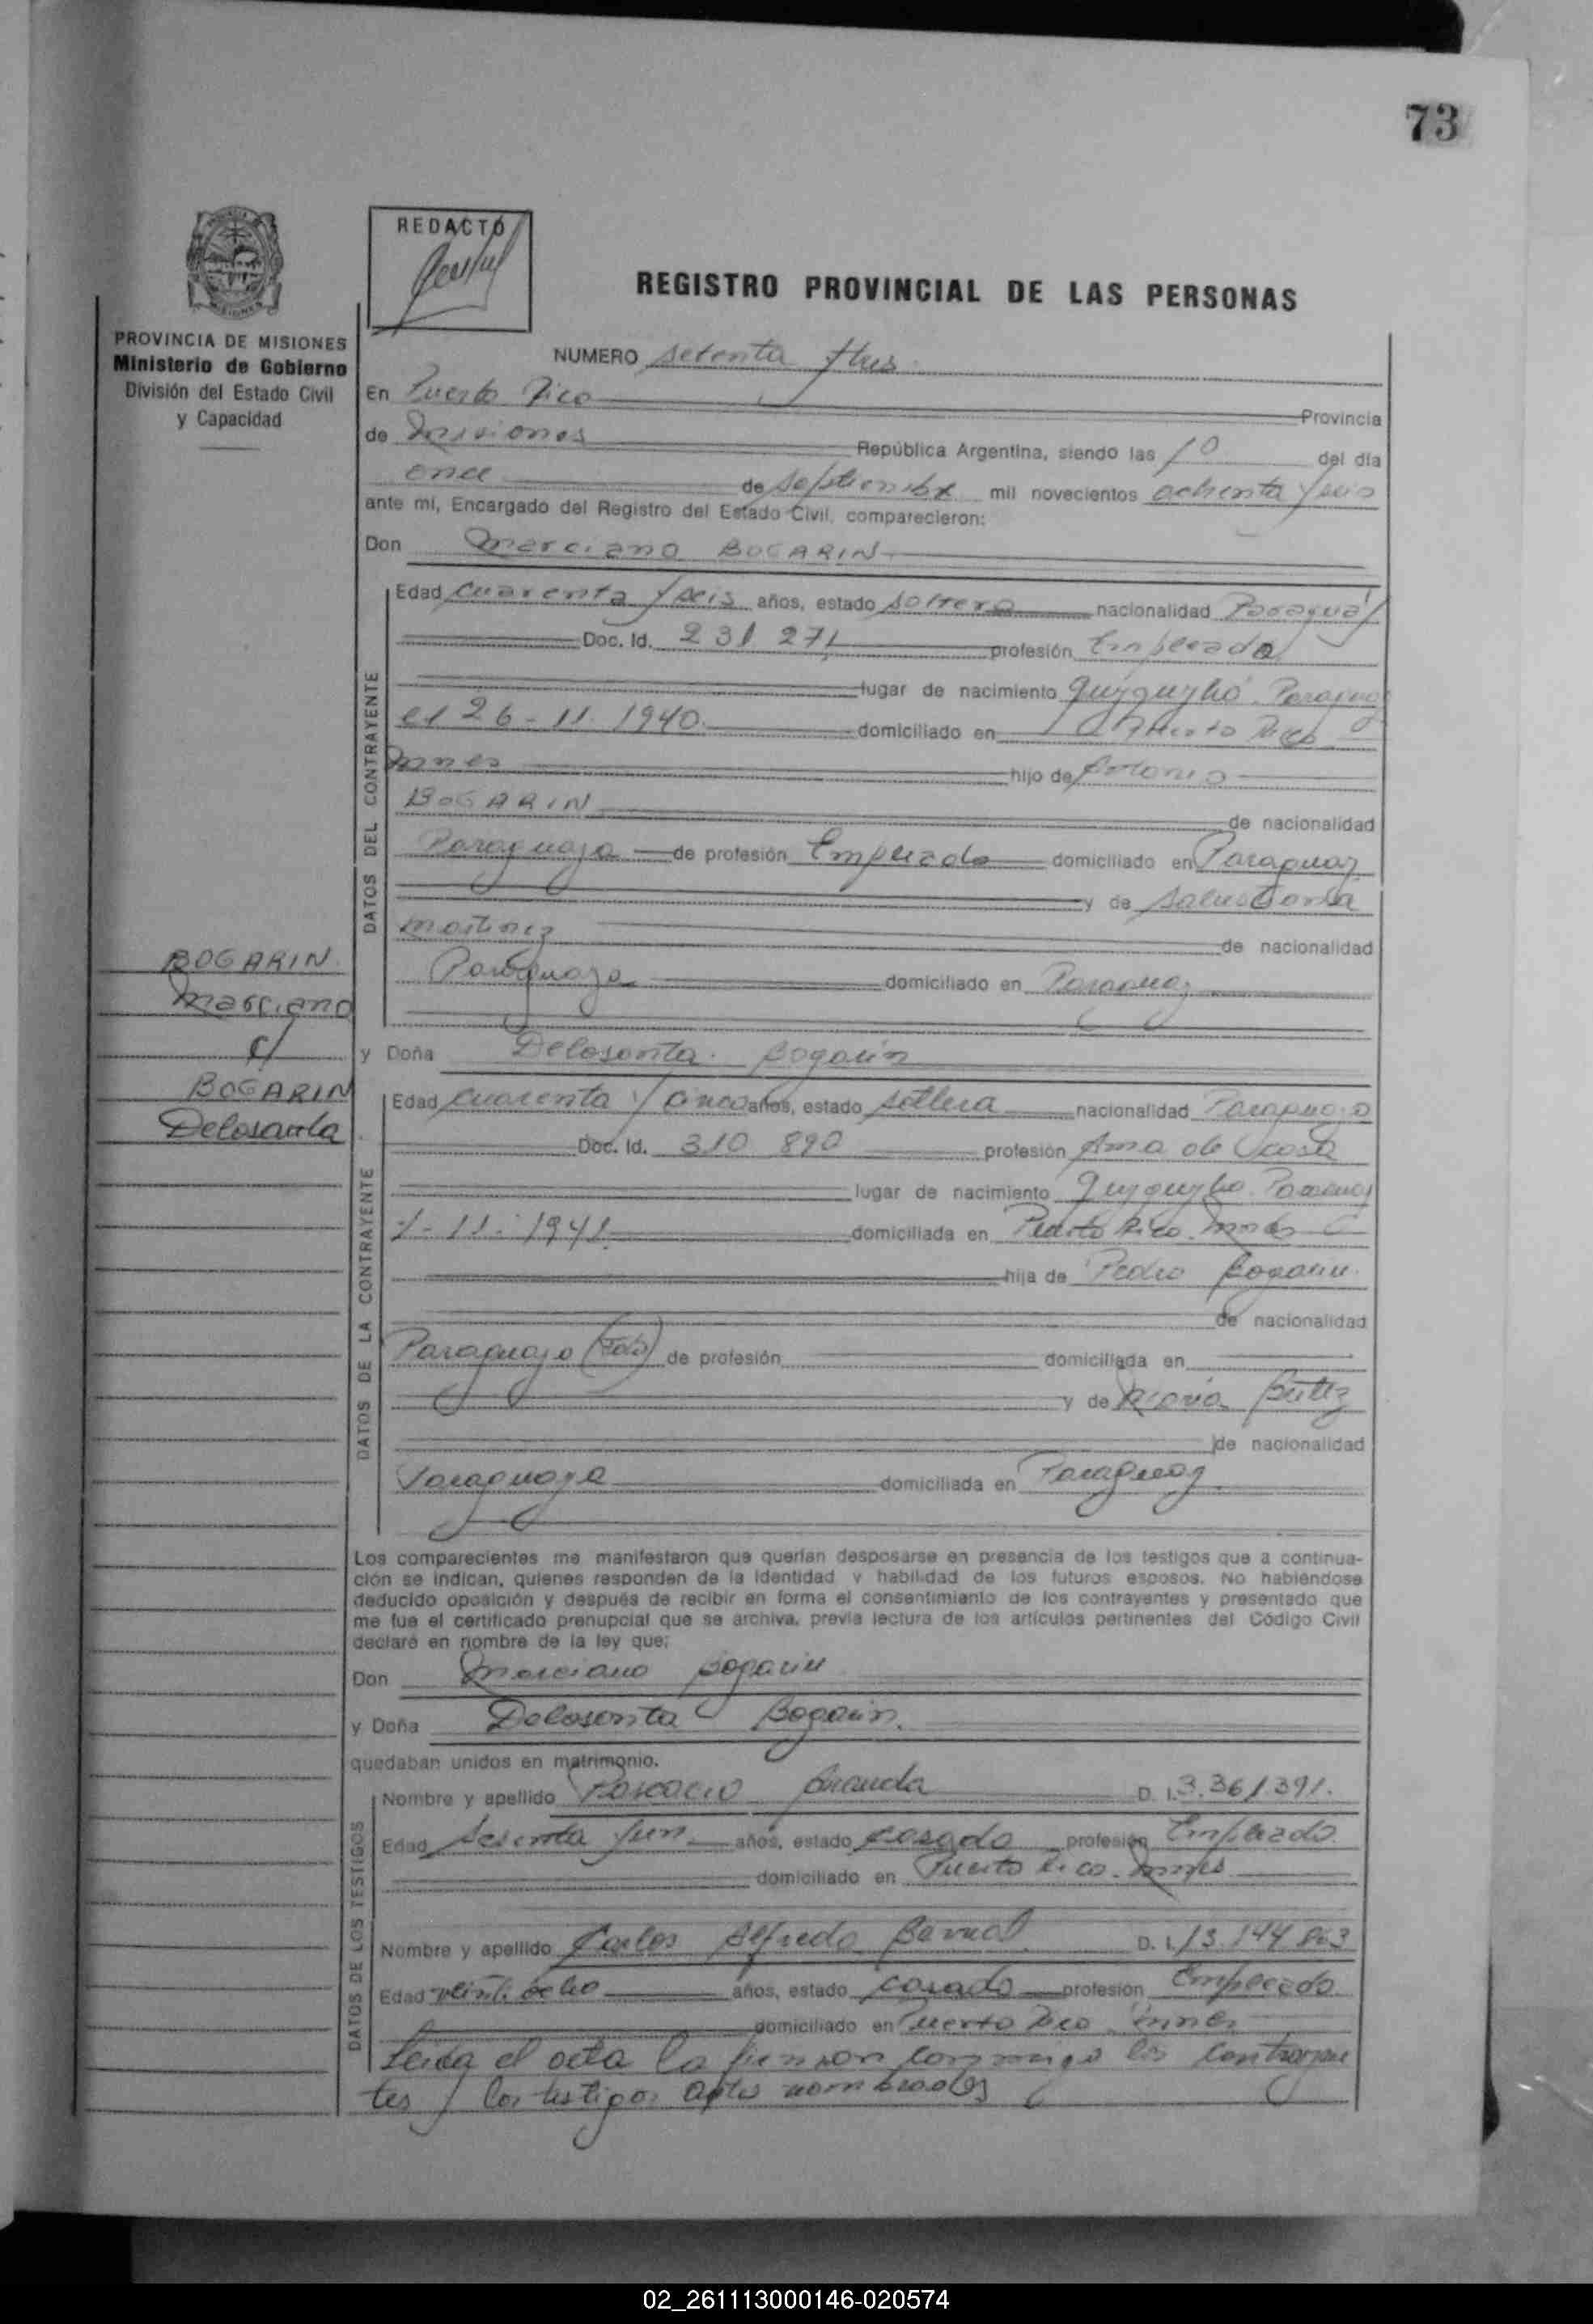 73
REDACTÓ
REGISTRO PROVINCIAL DE LAS PERSONAS
PROVINCIA DE MISIONES
Ministerio de Gobierno
División del Estado Civil
y Capacidad
NUMERO setenta y tres
En Puerto Rico Provincia
de Misiones República Argentina, siendo las 10 del día
once de septiembre mil novecientos ochenta y seis
ante mí, Encargado del Registro del Estado Civil, comparecieron:
Don Marciano BOGARIN
DATOS DEL CONTRAYENTE
Edad cuarenta y seis años, estado soltero nacionalidad Paraguay
Doc. Id. 231 271 profesión Empleado
lugar de nacimiento Quyquyhó. Paraguay
el 26-11-1940 domiciliado en Puerto Rico
Mnes hijo de
BOGARIN de nacionalidad
Paraguaya de profesión Empleado domiciliado en Paraguay
y de Salustiana
Martinez de nacionalidad
Paraguaya domiciliado en Paraguay
BOGARIN
Marciano
c/
BOGARIN
Delosanta
y Doña Delosanta Bogarin
DATOS DE LA CONTRAYENTE
Edad cuarenta y cinco años, estado soltera nacionalidad Paraguaya
Doc. Id. 310 890 profesión Ama de casa
lugar de nacimiento Quyquyho. Paraguay
1-11-1941 domiciliada en Puerto Rico. Mnes
hija de Pedro Bogarin
de nacionalidad
Paraguayo de profesión domiciliada en
y de Maria
de nacionalidad
Paraguaya domiciliada en Paraguay
Los comparecientes me manifestaron que querían desposarse en presencia de los testigos que a continua-
ción se indican, quienes responden de la identidad y habilidad de los futuros esposos. No habiéndose
deducido oposición y después de recibir en forma el consentimiento de los contrayentes y presentado que
me fue el certificado prenupcial que se archiva, previa lectura de los artículos pertinentes del Código Civil
declaré en nombre de la ley que;
Don Marciano Bogarin
y Doña Delosanta Bogarin.
quedaban unidos en matrimonio.
DATOS DE LOS TESTIGOS
Nombre y apellido D. I. 3.361.391.
Edad sesenta y un años, estado casado profesión Empleado
domiciliado en Puerto Rico. Mnes
Nombre y apellido Carlos Alfredo D. I. 13.144
Edad veintiocho años, estado casado profesión Empleado
domiciliado en Puerto Rico. Mnes
Leida el acta la firman conmigo los contrayen
tes y los testigos antes nombrados
02_261113000146-020574